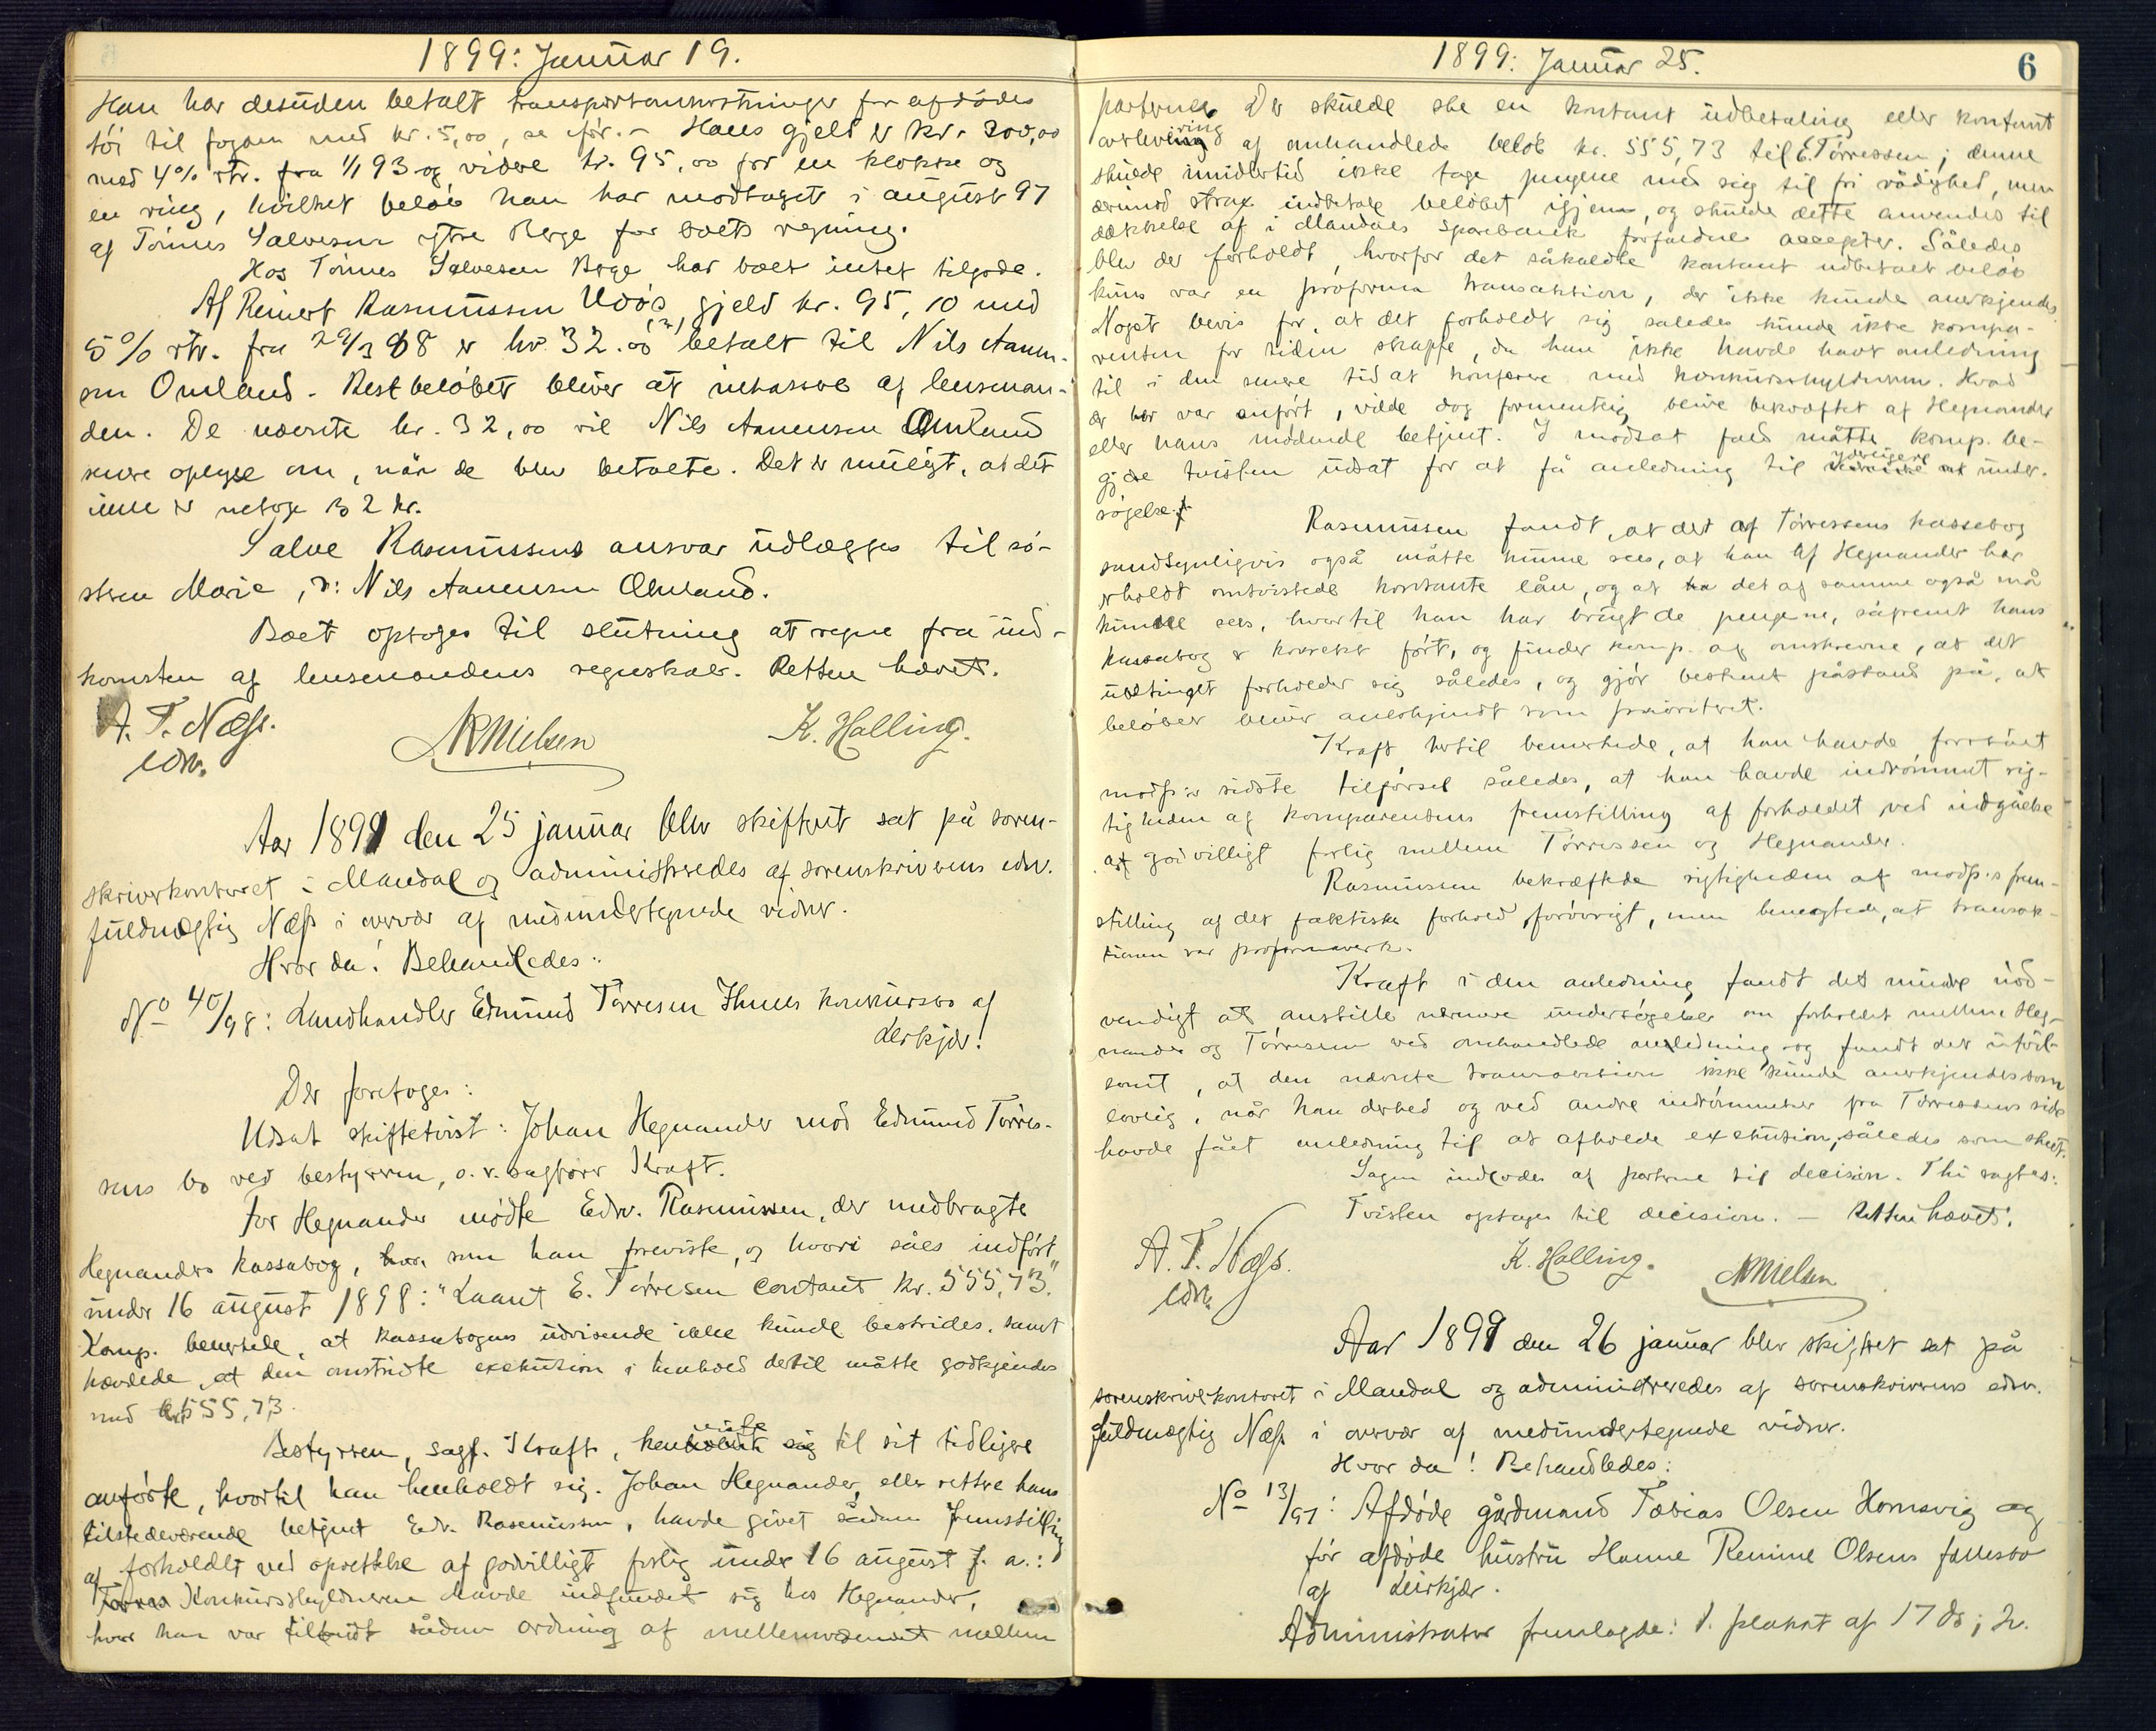 1899: Januar 19.
Han har desuden betalt transportomkostninger for afdødes
tøi til fogden med kr. 5,00, se før. - Hans gjeld er kr. 200,00
med 4% rtr. fra 1/1 93 og videre kr. 95,00 for en klokke og
en ring, hvilket beløb han har modtaget i august 97
af Tønnes Salvesen ytre Berge for boets regning.
Hos Tønnes Salvesen Berge har boet intet tilgode.
Af Reinert Rasmussen Udøs gjeld kr. 95,10 med
5% rtr. fra 29/3 88 er kr. 32.00 (?) betalt til Nils Aanen-
sen Omland. Restbeløbet bliver at inkassere af lensman-
den. De nævnte kr. 32,00 vil Nils Aanensen Omland
senere oplyse om, når de blev betalte. Det er muligt, at det
ikke er netop 32 kr.
Salve Rasmussens ansvar udlægges til sø-
steren Marie, ɔ: Nils Aanensen Omland.
Boet optoges til slutning at regne fra ind-
komsten af lensmandens regnskab. Retten hævet.
A. T. Næss.
edsv.
NK Nielsen
K. Halling.
Aar 1899 den 25 januar blev skifteret sat på soren-
skriverkontoret i Mandal og administreredes af sorenskriverens edsv.
fuldmægtig Næss i overvær af medundertegnede vidner.
Hvor da! Behandledes:
No 40/98: Landhandler Edmund Tørresen Ihmes konkursbo af
Lerkjær!
Der foretoges:
Udsat skiftetvist: Johan Hegnander mod Edmund Tørres-
sens bo ved bestyreren, o.r.sagfører Kraft.
For Hegnander mødte Edv. Rasmussen, der medbragte
Hegnanders kassabog, som han foreviste, og hvori såes indført
under 16 august 1898: "Laant E. Tørresen contant kr. 555,73."
Komp. bemerkede, at kassabogens udvisende ikke kunde bestrides, samt
hævdede, at den omstridte exekution i henhold dertil måtte godkjendes
med kr 555,73.
Bestyreren, sagf. Kraft, henviste til sit tidligere
anførte, hvortil han henholdt sig. Johan Hegnander, eller rettere hans
tilstedeværende betjent Edv. Rasmussen, havde givet sådan fremstilling
af forholdet ved oprettelse af godvilligt forlig under 16 august f. a.:
Konkursskyldneren havde indfundet sig hos Hegnander,
hvor han var tilbudt sådan ordning af mellemværendet mellem
1899: Januar 25.
6
parterne. Der skulde ske en kontant udbetaling eller kontant
overlevering af omhandlede beløb kr. 555,73 til E. Tørressen; denne
skulde imidlertid ikke tage pengene med sig til fri rådighed, men
derimod strax indbetale beløbet igjen, og skulde dette anvendes til
dækkelse af i Mandals Sparebank forfaldne accepter. Således
blev der forholdt, hvorfor det såkaldte kontant udbetalt beløb
kuns var en proforma transaktion, der ikke kunde anerkjendes.
Noget bevis for, at det forholdt sig således kunde ikke kompa-
renten for tiden skaffe, da han ikke havde havt anledning
til i den senere tid at konferere med konkursskyldneren. Hvad
der her var anført, vilde dog formentlig blive bekræftet af Hegnander
eller hans mødende betjent. I modsat fald måtte komp. be-
gjære tvisten udsat for at få anledning til yderligere under-
søgelse.
Rasmussen fandt, at det af Tørressens kassabog
sandsynligvis også måtte kunne sees, at han af Hegnander har
erholdt omtvistede kontante lån, og at det af samme også må
kunne sees, hvortil han har brugt de pengene, såfremt hans
kassabog er korrekt ført, og finder komp. af omskrevne, at det
forholder sig således, og gjør bestemt påstand på, at
beløbet bliver anerkjendt som prioriteret.
Kraft hertil bemerkede, at han havde forstået
modp:s sidste tilførsel således, at han havde indrømmet rig-
tigheden af komparentens fremstilling af forholdet ved indgåelse
af godvilligt forlig mellem Tørressen og Hegnander.
Rasmussen bekræftede rigtigheden af modp:s frem-
stilling af det faktiske forhold forøvrigt, men benegtede, at transak-
tionen var proformaverk.
Kraft i den anledning fandt det mindre nød-
vendigt at anstille nærmere undersøgelser om forholdet mellem Heg-
nander og Tørressen ved omhandlede anledning og fandt det utvil-
somt, at den nævnte transaktion ikke kunde anerkjendes som
lovlig, når han derved og ved andre indrømmelser fra Tørressens side
havde fået anledning til at afholde exekution, således som skeet.
Sagen indlodes af parterne til decision. Thi sagtes:
Tvisten optages til decision. — Retten hævet.
A. T. Næss.
edsv.
K. Halling.
NK Nielsen
Aar 1899 den 26 januar blev skifteret sat på
sorenskriverkontoret i Mandal og administreredes af sorenskriverens edsv.
fuldmægtig Næss i overvær af medundertegnede vidner.
Hvor da! Behandledes:
No 13/97: Afdøde gårdmand Tobias Olsen Homsvig og
før afdøde hustru Hanne Remine Olsens fællesbo
af Leirkjær.
Administrator fremlagde: 1. plakat af 17 ds; 2.